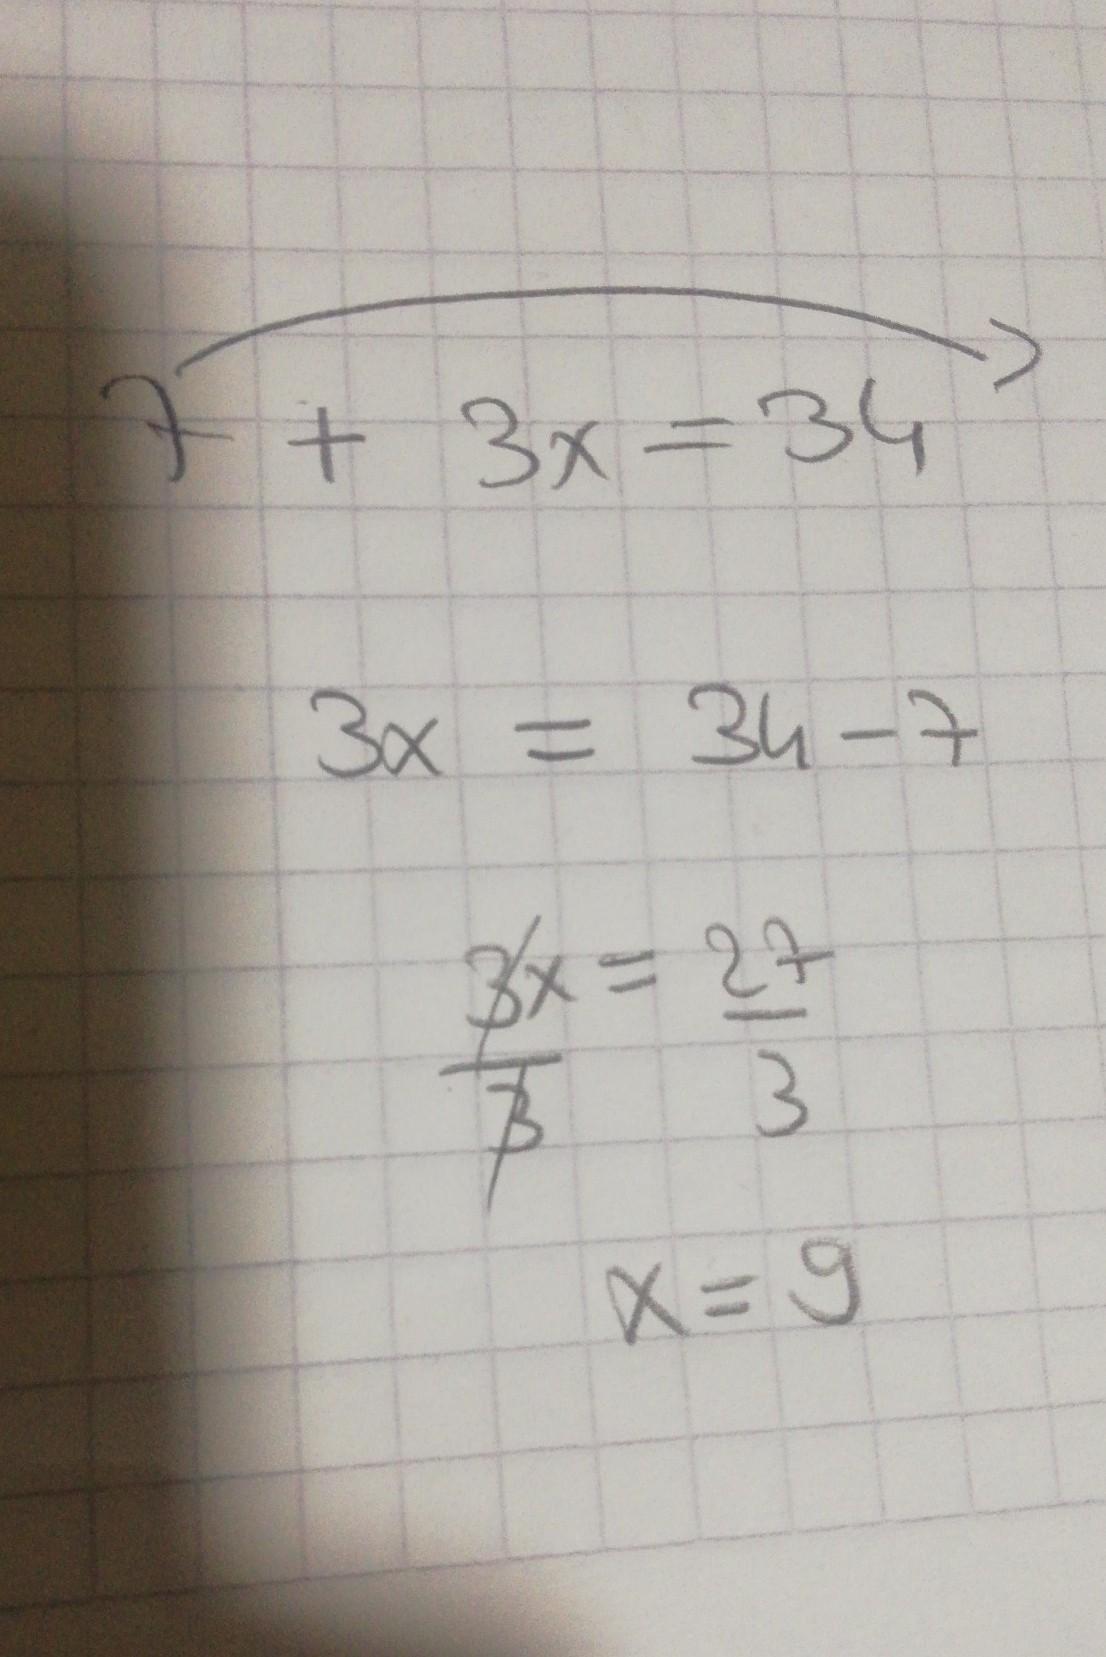 7 + 3x = 34
3x = 34 - 7
3x/3 = 27/3
x = 9